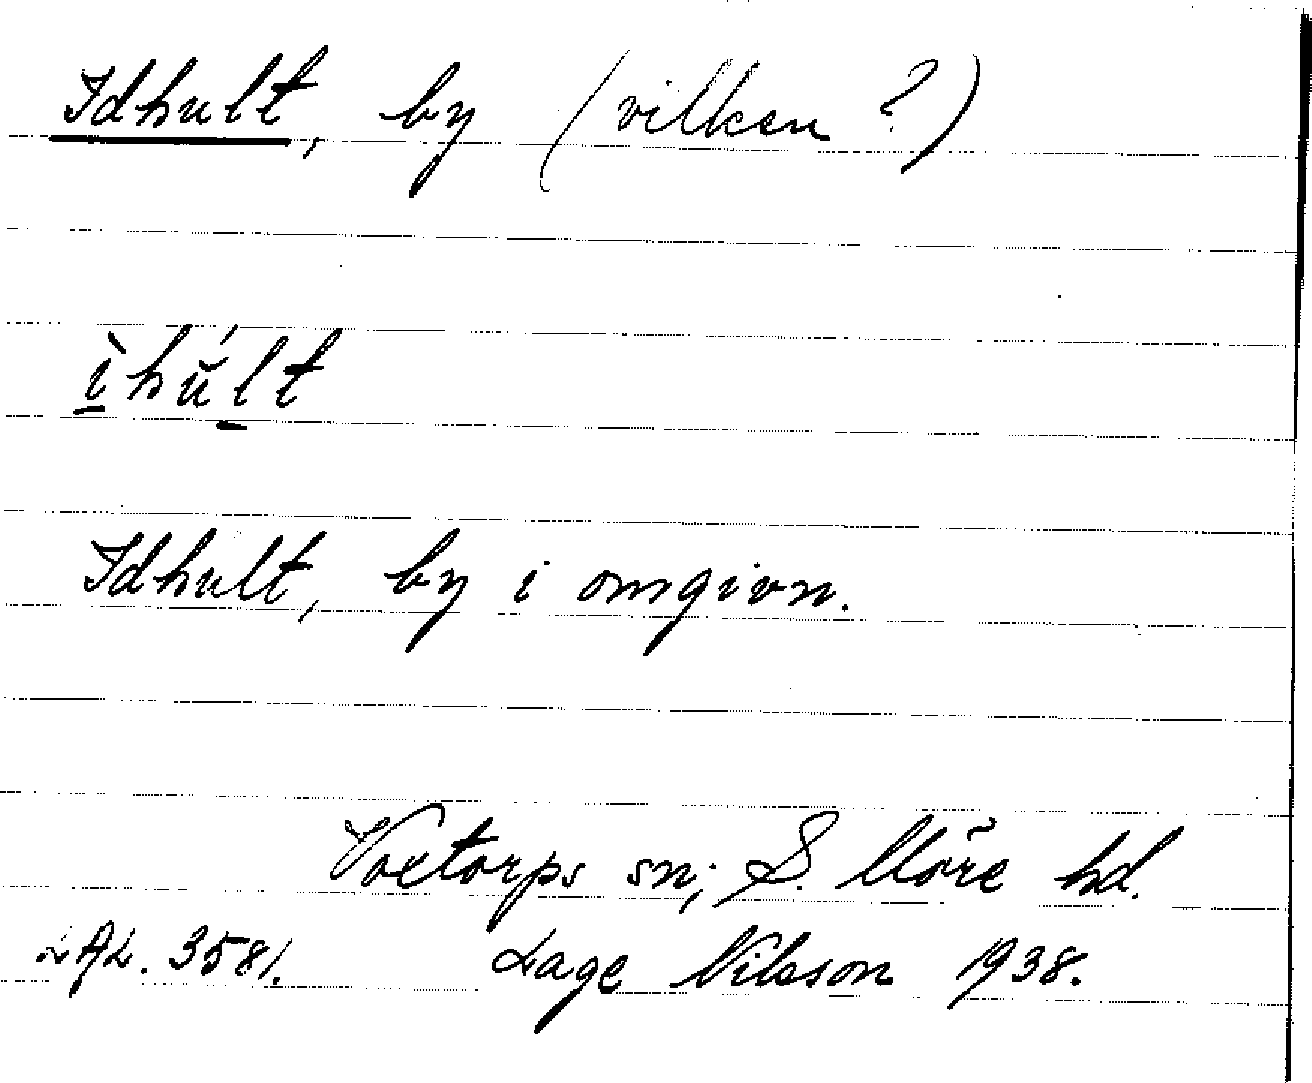 Idhult, by (vilken?)
ìhúlt
Idhult, by i omgivn.
Voxtorps sn; S. Möre hd.
LAL. 3581. Lage Nilsson 1938.